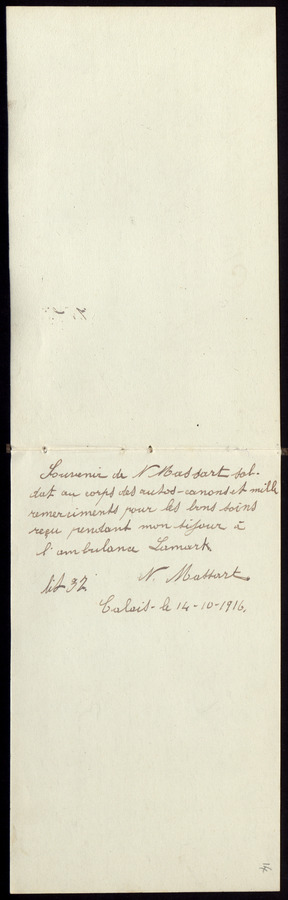 Souvenir de N Massart sol-
dat au corps des autos-canons et mille
remerciments pour les bons soins
reçu pendant mon séjour à
l'ambulance Lamark
lit 32 N. Massart
Calais - le 14-10-1916.
14